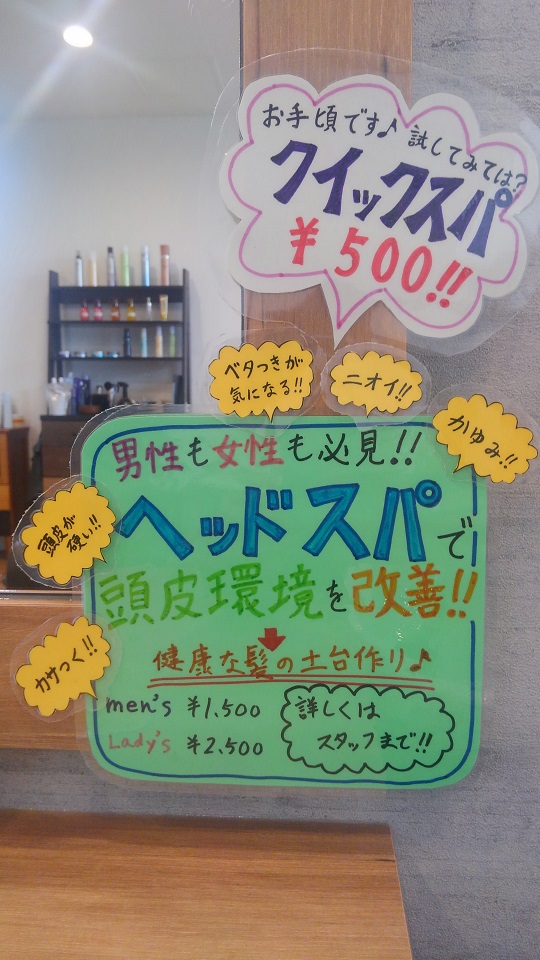 お手頃です♪ 試してみては?
クイックスパ
¥500!!
ベタつきが
気になる!!
ニオイ!!
かゆみ!!
頭皮が
硬い!!
カサつく!!
男性も女性も必見!!
ヘッドスパで
頭皮環境を改善!!
健康な髪の土台作り♪
men's ¥1,500
Lady's ¥2,500
詳しくは
スタッフまで!!